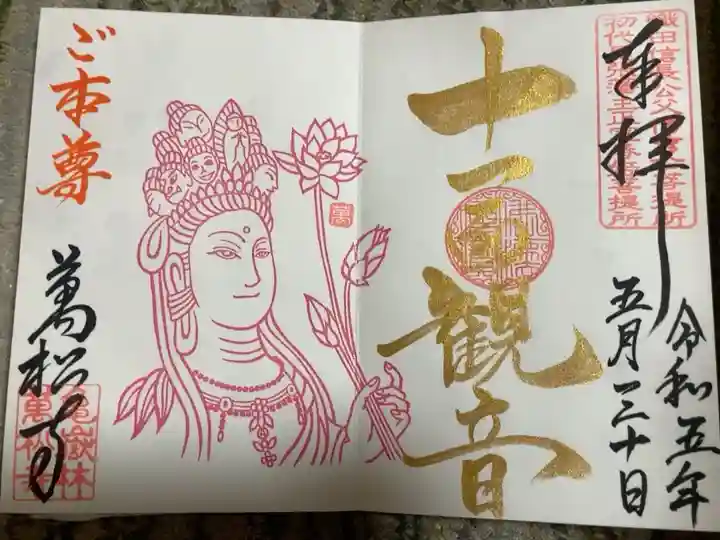 奉拝
織田信長公父信秀公菩提所
初代尾張藩主正室春姫菩提所
十一面観音
令和五年
五月三十日
ご本尊
萬松寺
亀嶽林
萬松寺
萬